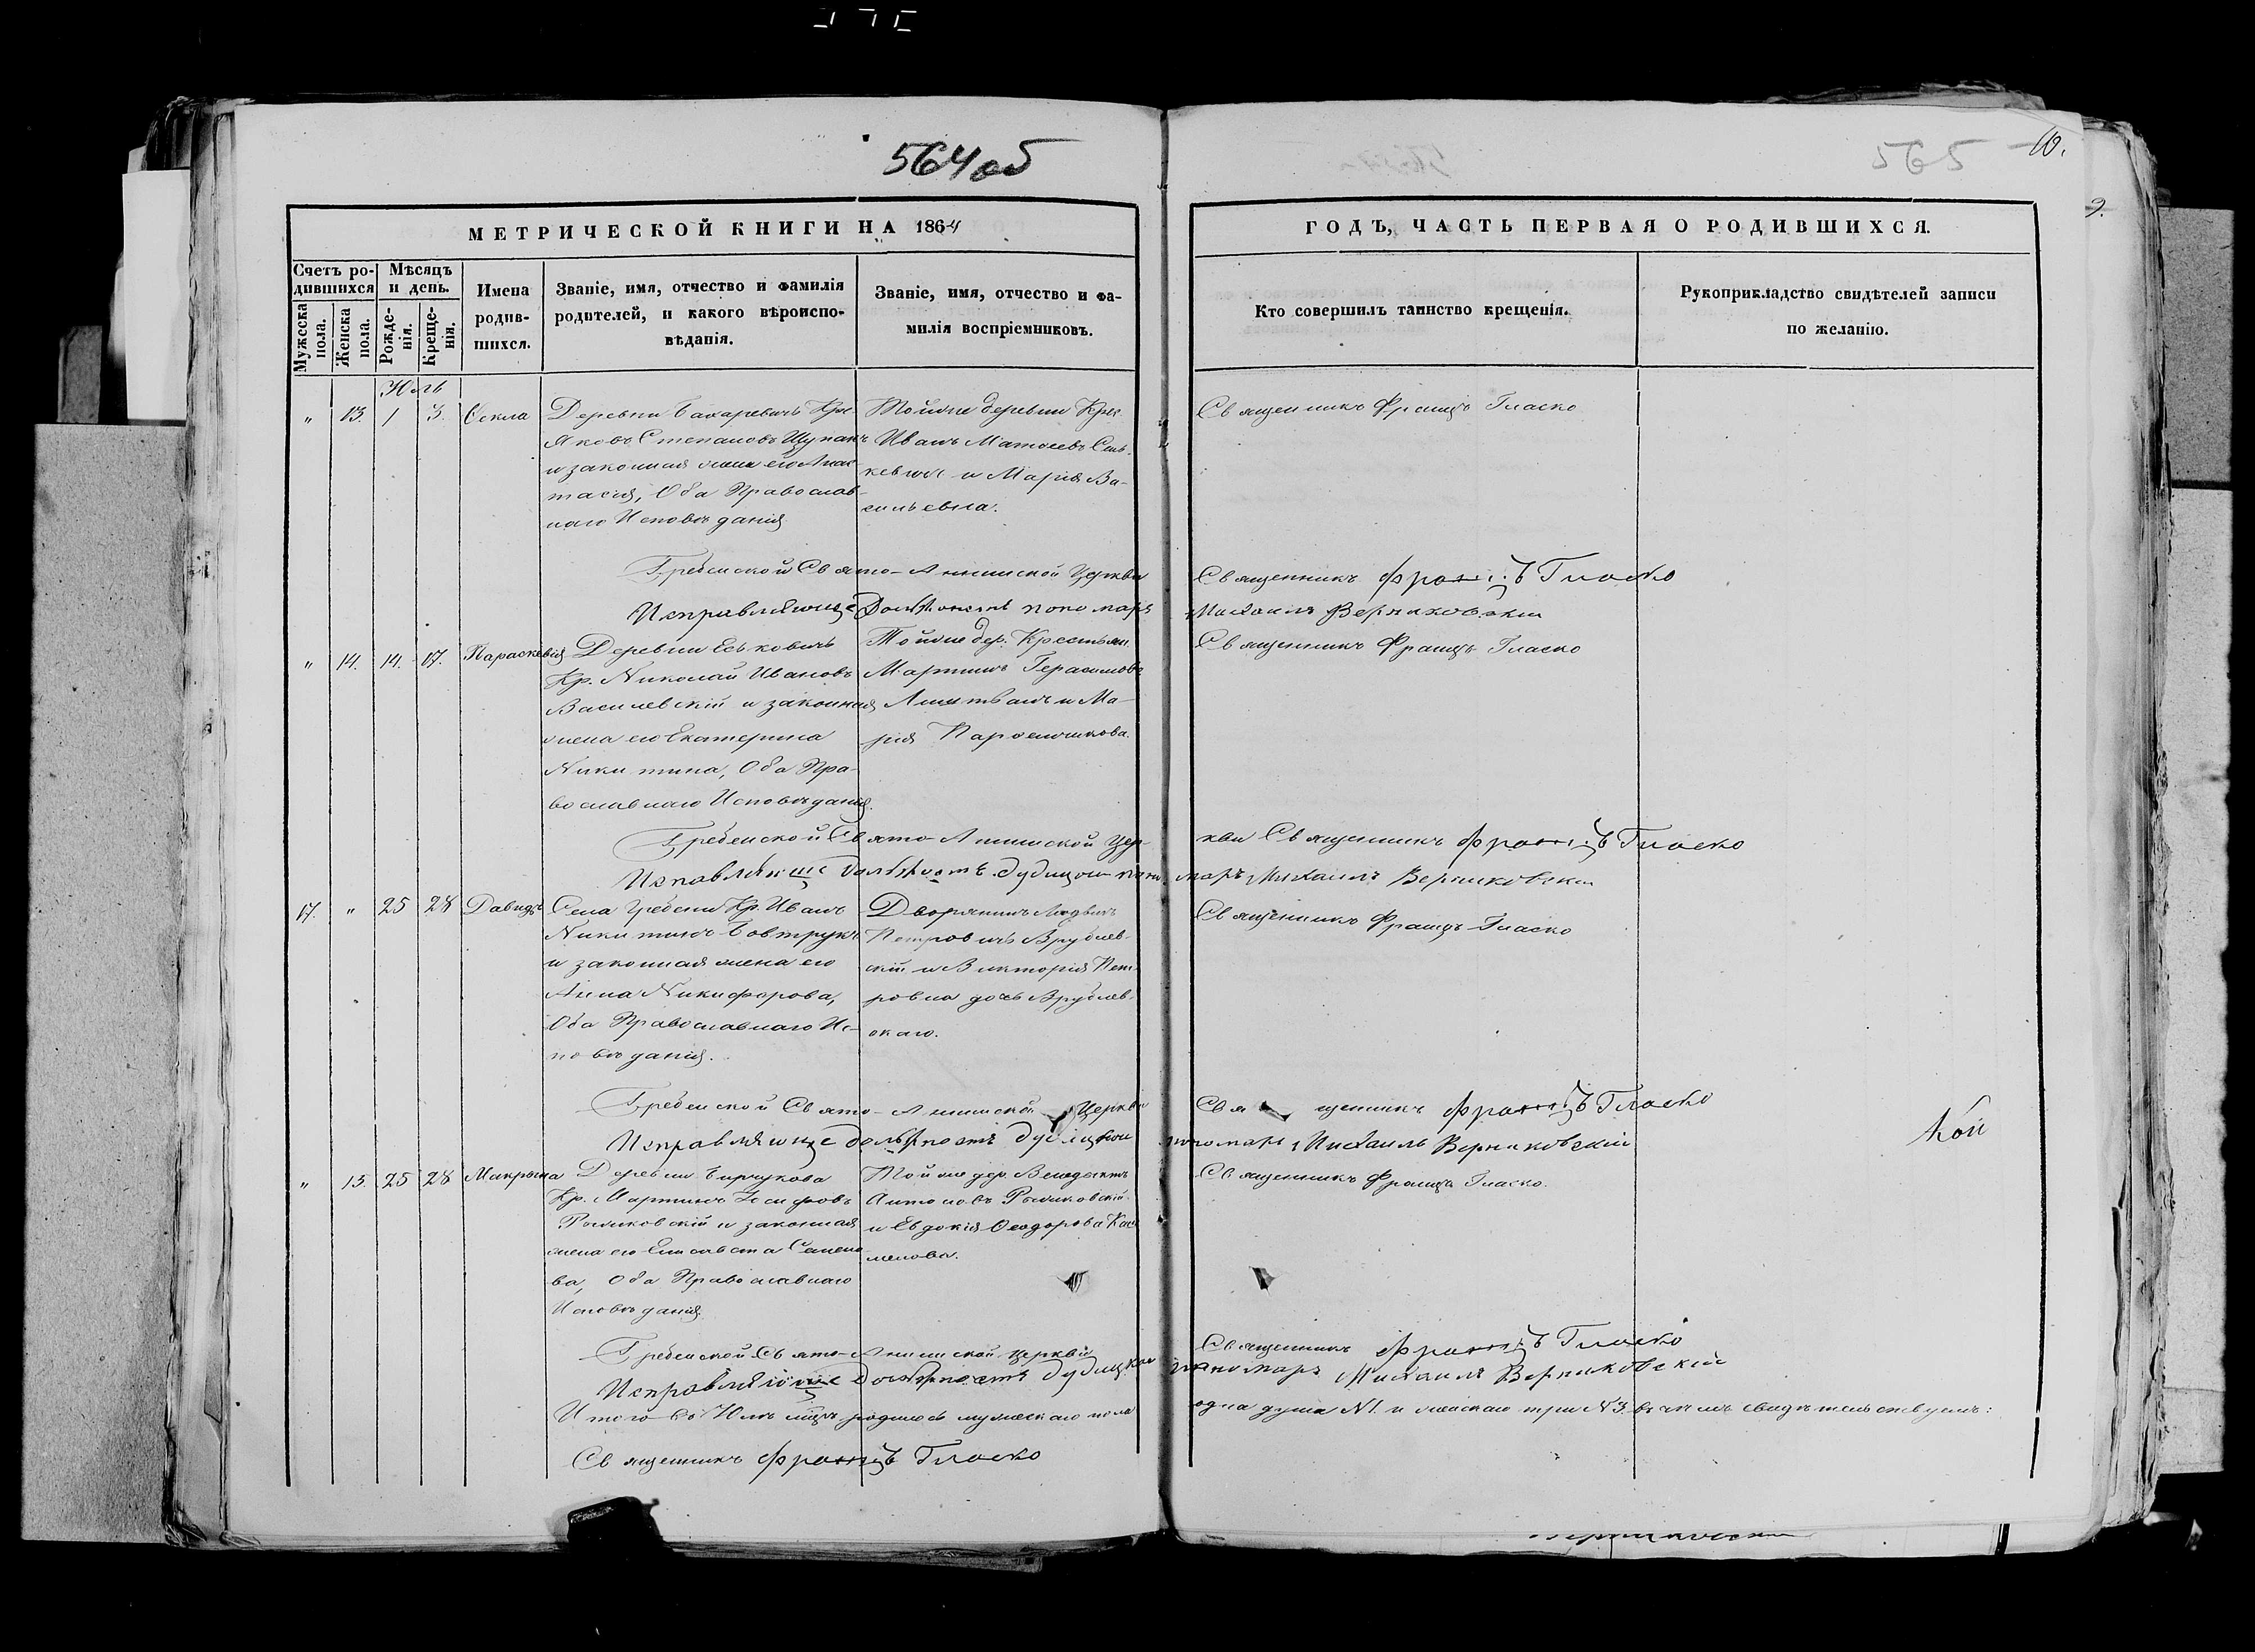 564 об
10.
МЕТРИЧЕСКОЙ КНИГИ НА 1864
ГОДЪ, ЧАСТЬ ПЕРВАЯ О РОДИВШИХСЯ.
Счетъ ро-
дившихся
Мужеска пола.
Женска пола.
Мѣсяцъ
и день.
Рожде-
нія.
Креще-
нія.
Имена
родив-
шихся.
Званіе, имя, отчество и фамилія
родителей, и какого вѣроиспо-
вѣданія.
Званіе, имя, отчество и фа-
милія воспріемниковъ.
Кто совершилъ таинство крещенія.
Рукоприкладство свидѣтелей записи
по желанію.
Юль
" 13. 1 3. Ѳекла
Деревни Бахаревичъ Кре.
Яковъ Степановъ Щупакъ
и законная жена его Анас-
тасія, Оба Православ-
наго Исповѣданія
Тойже деревни Крес.
Иванъ Матѳеевъ
и Марія Ва-
сильевна.
Священникъ Францъ Гласко
Гребенской Свято-Аннинской Церкви Священникъ Францъ Гласко
Исправляюще Должность пономарь Михаилъ Верниковскій
" 14. 14. 17. Параскевія
Деревни Еськовичъ
Кр. Николай Ивановъ
Василевскій и законная
жена его Екатерина
Никитина, Оба Пра-
вославнаго Исповѣданія.
Тойже дер. Крестьян.
Мартинъ Герасимовъ
и Ма-
рія
Священникъ Францъ Гласко
Гребенской Свято-Аннинской Цер-
кви Священникъ Францъ Гласко
Исправляюще должность дудицкой пономарь Михаилъ Верниковскій
17. " 25 28 Давидъ
Села Гребени Кр. Иванъ
Никитинъ Бовтрукъ
и законная жена его
Анна Никифорова,
Оба Православнаго Ис-
повѣданія.
Дворянинъ Людвигъ
Петровичъ Врублев-
скій и Викторія Пет-
ровна дочь Врублев-
скаго.
Священникъ Францъ Гласко
Гребенской Свято-Аннинской Церкви Священникъ Францъ Гласко
Исправляюще должность дудицкой пономарь Михаилъ Верниковскій
кой
" 15. 25 28 Макрына
Деревни Бирчукова
Кр. Мартинъ Іосифовъ
и законная
жена его Елисавета Семено-
ва, Оба Православнаго
Исповѣданія.
Тойже дер. Венедыктъ
Антоновъ
и Евдокія Ѳеодорова
Священникъ Францъ Гласко.
Гребенской Свято-Аннинской церкви Священникъ Францъ Гласко
Исправляюще должность дудицкой пономарь Михаилъ Верниковскій
Итого въ Юлѣ м-цѣ родилось мужескаго пола одна душа №1. и женскаго три №3. въ чемъ свидѣтельствуемъ:
Священникъ Францъ Гласко